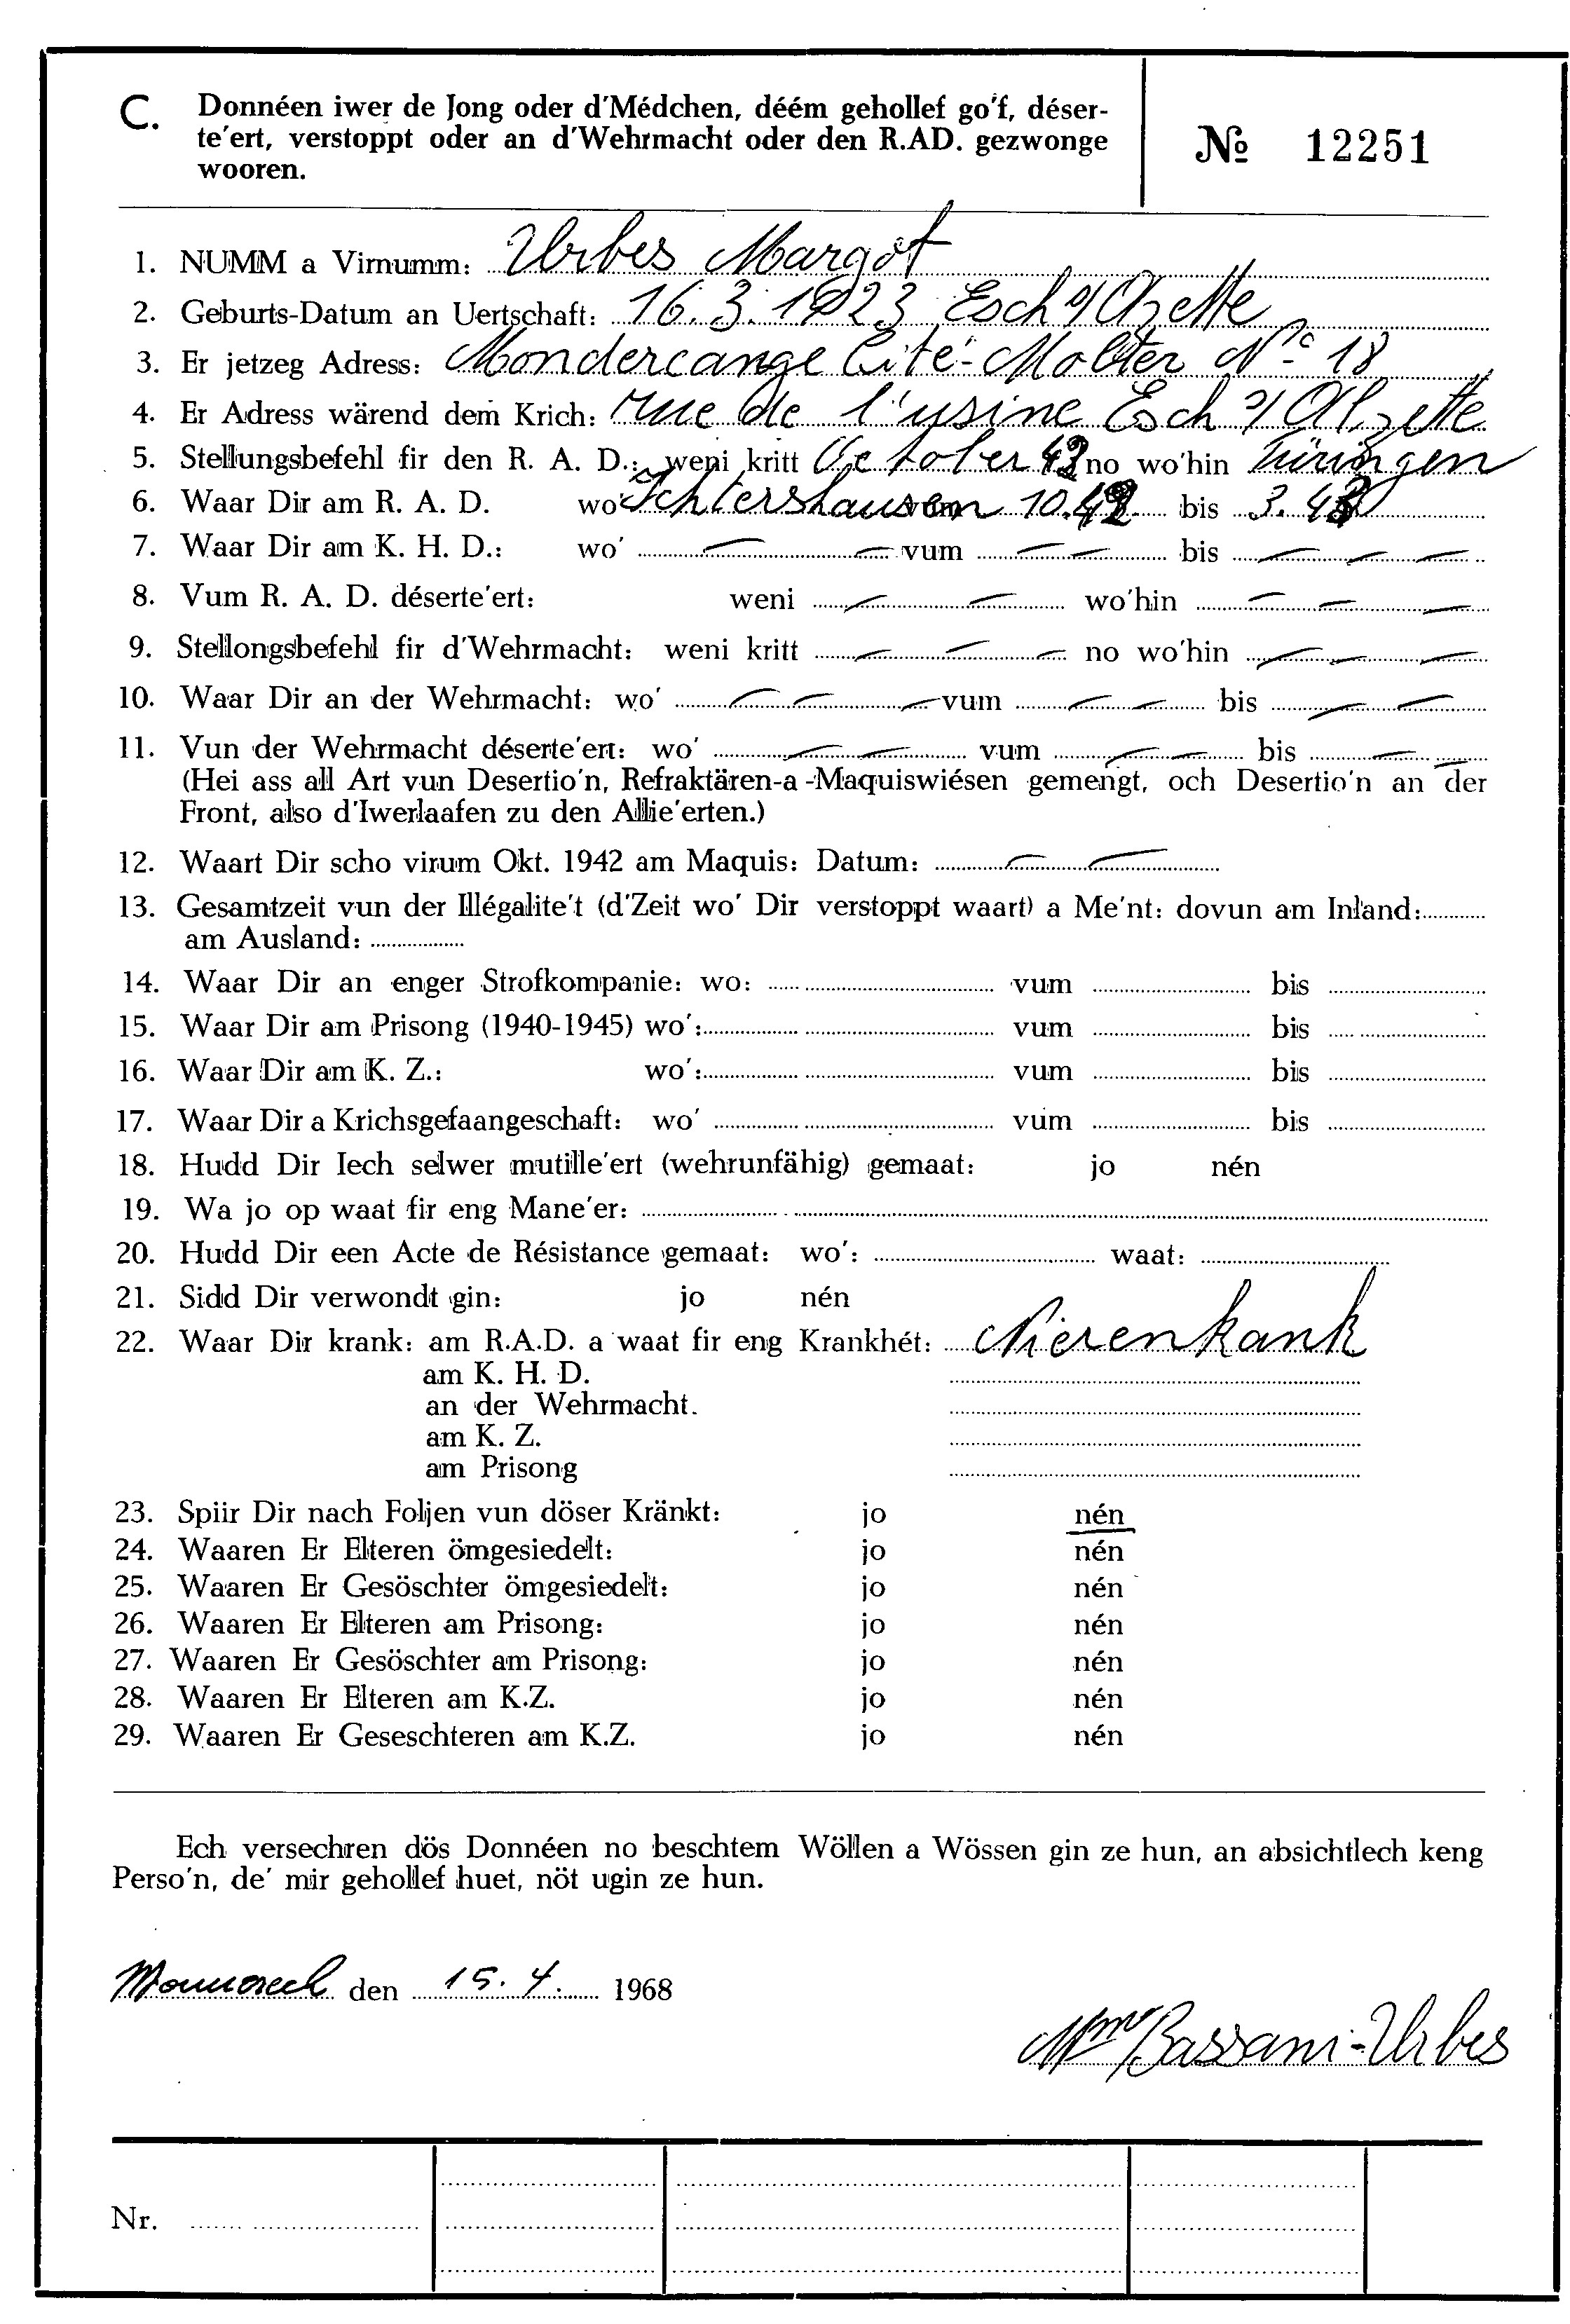 C. Donnéen iwer de Jong oder d'Médchen, déém gehollef go'f, déser-
te'ert, verstoppt oder an d'Wehrmacht oder den R.AD. gezwonge
wooren.
№ 12251
1. NUMM a Virnumm: Urbes Margot
2. Geburts-Datum an Uertschaft: 16.3.1923 Esch s/Alzette
3. Er jetzeg Adress: Mondercange Cité-Molter No 18
4. Er Adress wärend dem Krich: rue de l'usine Esch s/Alzette
5. Stellungsbefehl fir den R. A. D.: weni kritt October 42 no wo'hin Türingen
6. Waar Dir am R. A. D. wo' Ichtershausen vum 10.42 bis 3.43
7. Waar Dir am K. H. D.: wo' — — vum — — bis — — —
8. Vum R. A. D. déserte'ert: weni — — wo'hin — — —
9. Stellongsbefehl fir d'Wehrmacht: weni kritt — — — no wo'hin — — —
10. Waar Dir an der Wehrmacht: wo' — — — vum — — bis — —
11. Vun der Wehrmacht déserte'ert: wo' — — vum — — bis — —
(Hei ass all Art vun Desertio'n, Refraktären-a-Maquiswiésen gemengt, och Desertio'n an der
Front, also d'Iwerlaafen zu den Allie'erten.)
12. Waart Dir scho virum Okt. 1942 am Maquis: Datum: — —
13. Gesamtzeit vun der Illégalite't (d'Zeit wo' Dir verstoppt waart) a Me'nt: dovun am Inland:
am Ausland:
14. Waar Dir an enger Strofkompanie: wo: vum bis
15. Waar Dir am Prisong (1940-1945) wo': vum bis
16. Waar Dir am K. Z.: wo': vum bis
17. Waar Dir a Krichsgefaangeschaft: wo' vum bis
18. Hudd Dir Iech selwer mutille'ert (wehrunfähig) gemaat: jo nén
19. Wa jo op waat fir eng Mane'er:
20. Hudd Dir een Acte de Résistance gemaat: wo': waat:
21. Sidd Dir verwondt gin: jo nén
22. Waar Dir krank: am R.A.D. a waat fir eng Krankhét: Nierenkank
am K. H. D.
an der Wehrmacht.
am K. Z.
am Prisong
23. Spiir Dir nach Foljen vun döser Kränkt: jo nén
24. Waaren Er Elteren ömgesiedelt: jo nén
25. Waaren Er Gesöschter ömgesiedelt: jo nén
26. Waaren Er Elteren am Prisong: jo nén
27. Waaren Er Gesöschter am Prisong: jo nén
28. Waaren Er Elteren am K.Z. jo nén
29. Waaren Er Geseschteren am K.Z. jo nén
Ech versechren dös Donnéen no beschtem Wöllen a Wössen gin ze hun, an absichtlech keng
Perso'n, de' mir gehollef huet, nöt ugin ze hun.
Monnerech den 15.4. 1968
Mme Bassani-Urbes
Nr.